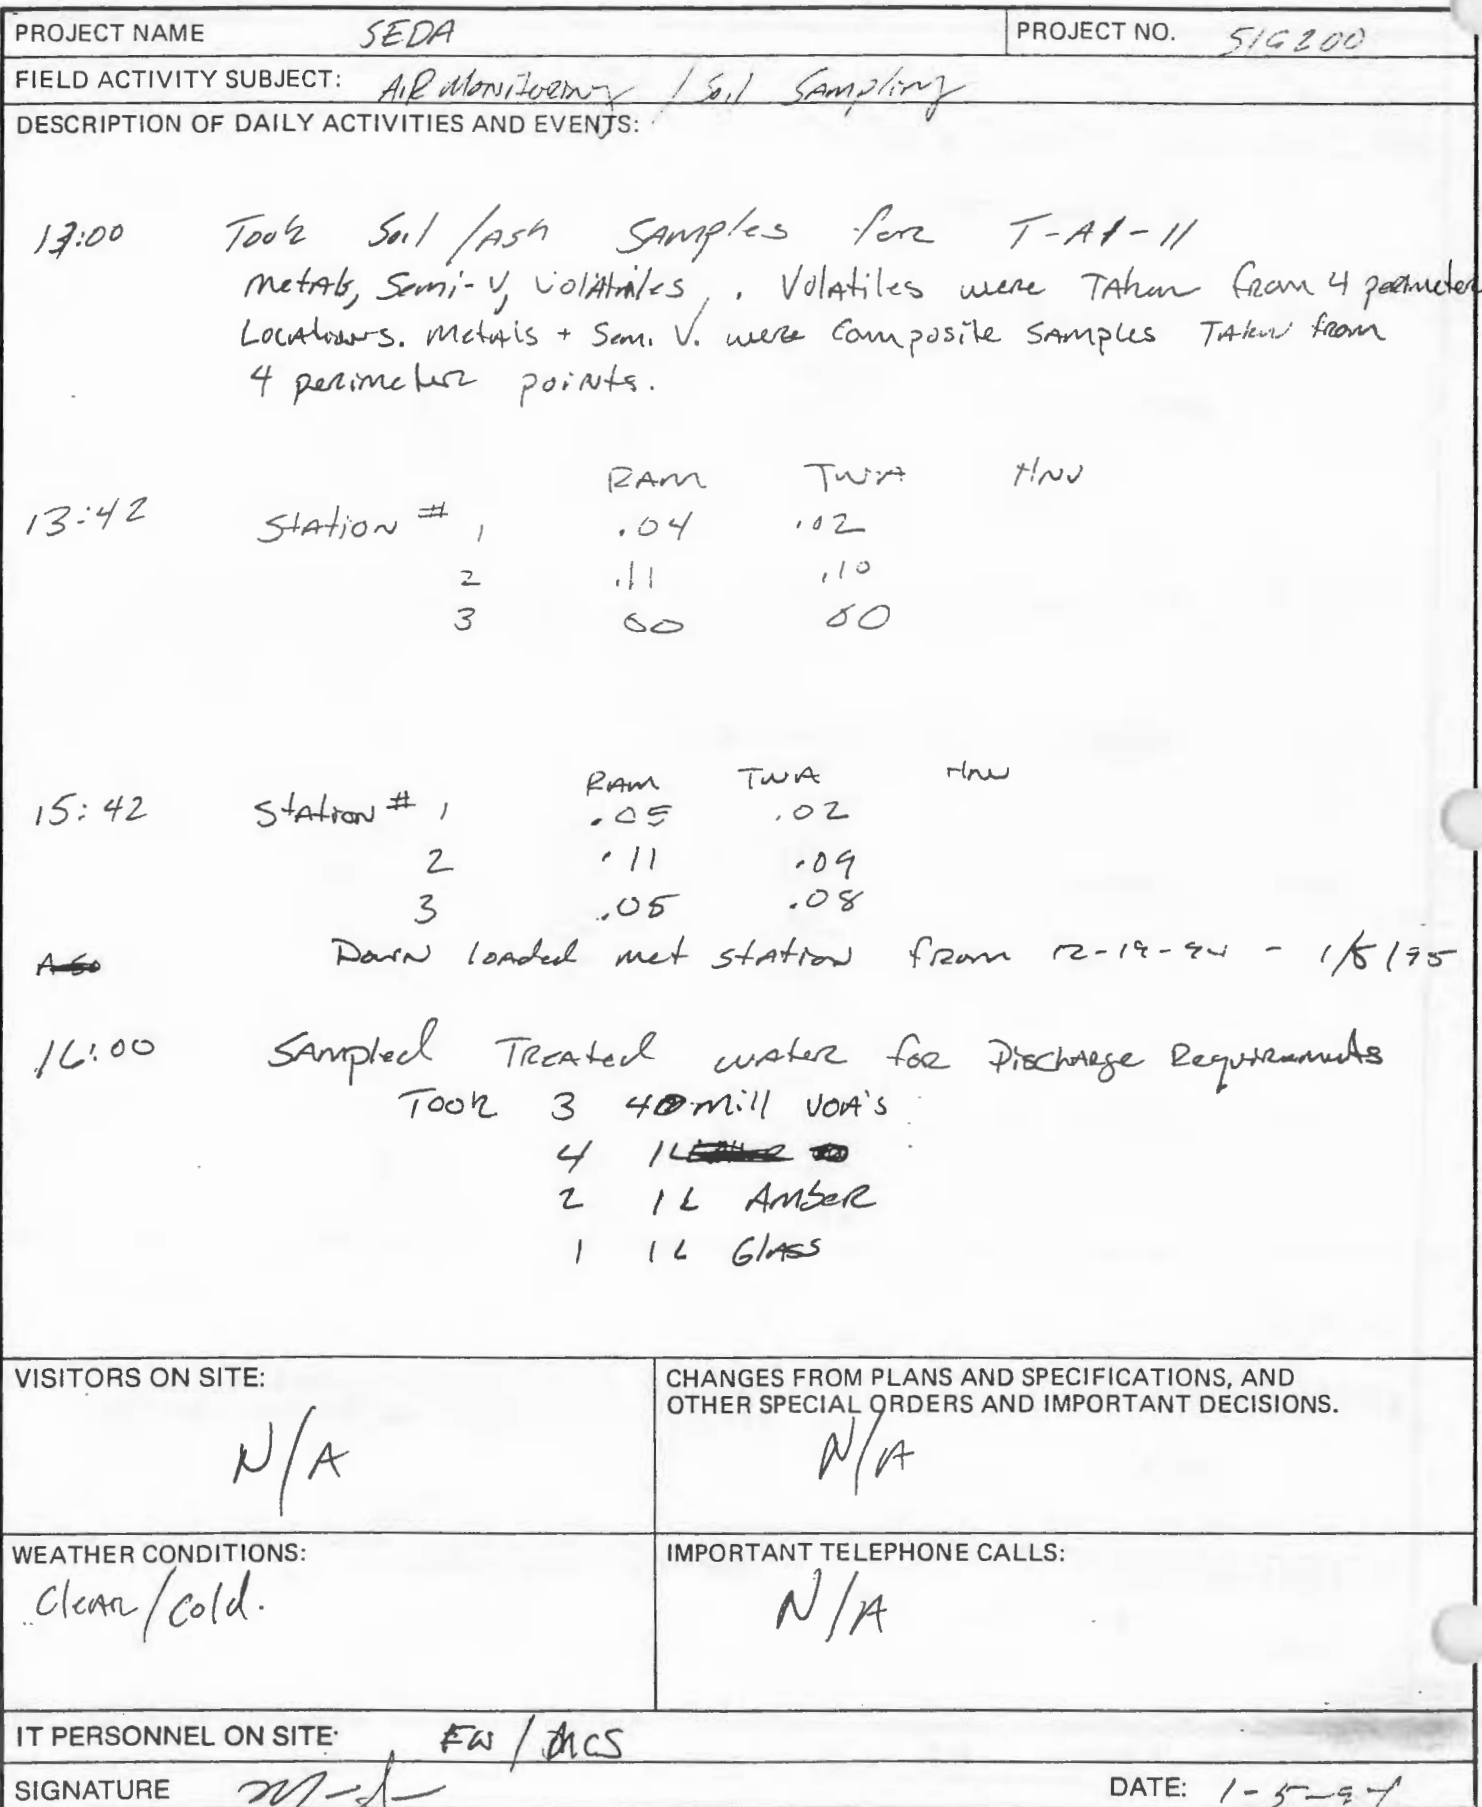 PROJECT NAME SEDA PROJECT NO. 519200
FIELD ACTIVITY SUBJECT: AIR Monitoring / Soil Sampling
DESCRIPTION OF DAILY ACTIVITIES AND EVENTS:
13:00 Took Soil /Ash Samples for T-A1-11
Metals, Semi-V, Volitiles, . Volatiles were Taken from 4 perimeter
Locations. Metals + Semi. V. were Composite Samples Taken from
4 perimeter points.
RAM TWA HNU
13:42 Station # 1 .04 .02
2 .11 .10
3 00 00
RAM TWA HNU
15:42 Station # 1 .05 .02
2 .11 .09
3 .05 .08
Down loaded met station from 12-19-94 - 1/5/95
16:00 Sampled Treated water for Discharge Requirements
Took 3 40 mill VOA's
4 1L
2 1L Amber
1 1L Glass
VISITORS ON SITE:
N/A
CHANGES FROM PLANS AND SPECIFICATIONS, AND
OTHER SPECIAL ORDERS AND IMPORTANT DECISIONS.
N/A
WEATHER CONDITIONS:
Clear/cold.
IMPORTANT TELEPHONE CALLS:
N/A
IT PERSONNEL ON SITE: EW / MCS
SIGNATURE DATE: 1-5-94